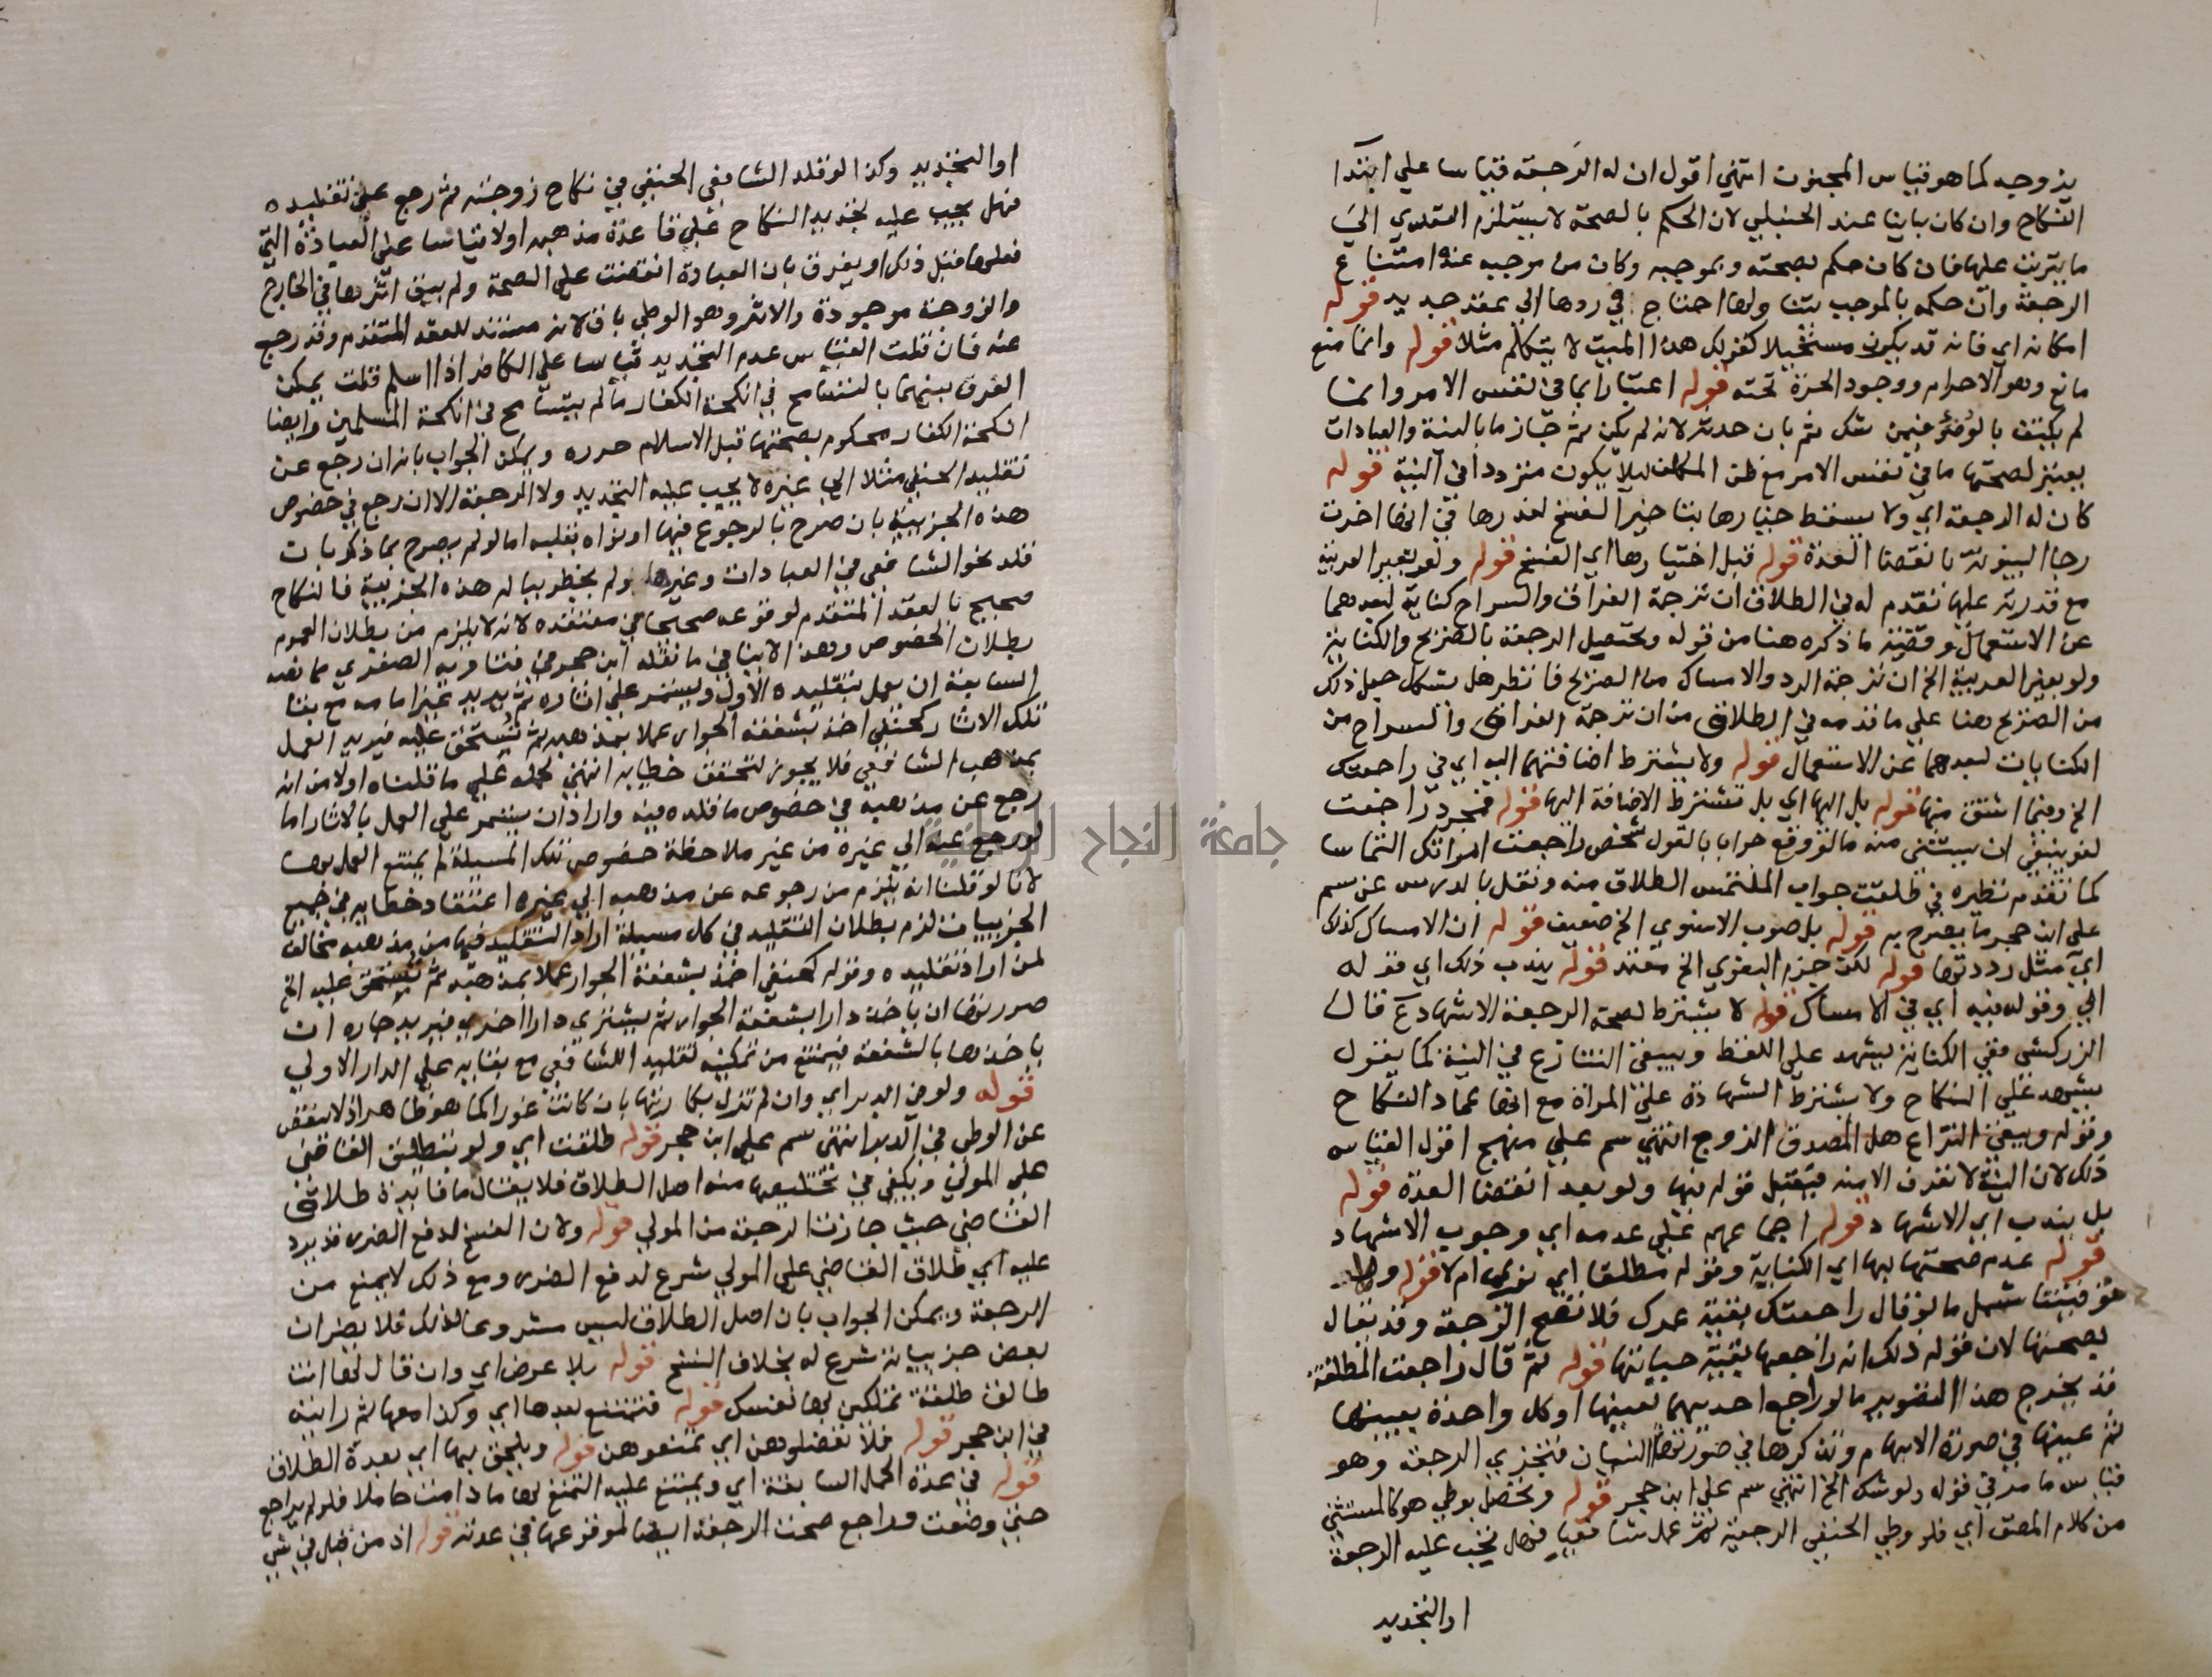 يزوجه كما هو قياس المجنون انتهي اقول ان له الرجعة قياسا علي ابتدا
النكاح وان كان باينا عند الحنبلي لان الحكم بالصحة لا يستلزم التعدي الي
ما يترتب عليها فان كان حكم بصحته وبموجبه وكان من موجبه عنده امتناع
الرجعة وان حكمه بالموجب يتناولها احتاج في ردها الي عقد جديد قوله
امكانه اي فانه قد يكون مستحيلا كقولك هذا الميت لا يتكلم مثلا قوله وانما منع
مانع وهو الاحرام ووجود الحرة تحته قوله اعتبارا بما في نفس الامر وانما
لم يكتف بالوضؤ فيمن شك ثم بان حدثه لانه لم يكن ثم جازما بالنية والعبادات
يعتبر لصحتها ما في نفس الامر مع ظن المكلف ليلا يكون مترددا في النية قوله
كان له الرجعة اي ولا يسقط خيارها بتاخير الفسخ لعذرها في انها اخرت
رجا البينونة بانقضا العدة قوله قبل اختيارها اي الفسخ قوله ولو بغير العربية
مع قدرته عليها تقدم له في الطلاق ان ترجمة الفراق والسراح كناية لبعدهما
عن الاستعمال وقضية ما ذكره هنا من قوله وتحصل الرجعة بالصريح والكناية
ولو بغير العربية الخ ان ترجمة الرد والامساك من الصريح فانظر هل يشكل جعل ذلك
من الصريح هنا علي ما قدمه في الطلاق من ان ترجمة الفراق والسراح من
الكنايات لبعدهما عن الاستعمال قوله ولا يشترط اضافتهما اليه اي في راجعتك
الخ وفيما اشتق منها قوله بل اليها اي بل تشترط الاضافة اليها قوله فمجرد راجعت
لغو ينبغي ان يستثني منه ما لو وقع جوابا بالقول شخص راجعت امراتك التماسا
كما تقدم نظيره في طلقت جواب الملتمس الطلاق منه ونقل بالدرس عن سم
علي ابن حجر ما يصرح به قوله بل صوب الاسنوي الخ ضعيف قوله ان الامساك كذلك
اي مثل رددتها قوله لكن جزم البغوي الخ معتمد قوله يندب ذلك اي قوله
الي وقوله فيه اي في الامساك قوله لا يشترط لصحة الرجعة الاشهاد ع قال
الزركشي ففي الكناية ليشهد علي اللفظ ويبقي التنازع في النية كما يقول
يشهد علي النكاح ولا يشترط الشهادة علي المراة مع انها عماد النكاح
وقوله ويبقي النزاع هل المصدق الزوج انتهي سم علي منهج اقول القياس
ذلك لان النية لا تعرف الا منه فيقبل قوله فيها ولو بعد انقضا العدة قوله
بل يندب اي الاشهاد قوله اجماعهم علي عدمه اي وجوب الاشهاد
قوله عدم صحتها بها اي الكناية وقوله مطلقا اي نوي ام لا قوله ولا
توقيتا شمل ما لو قال راجعتك بقية عمرك فلا تصح الرجعة وقد يقال
بصحتها لان قوله ذلك انه راجعها بقية حياتها قوله ثم قال راجعت المطلقة
قد يخرج هذا التصوير ما لو راجع احديهما بعينها او كل واحدة بعينها
ثم عينها في صورة الابهام وتذكرها في صورة النسيان فتجزي الرجعة وهو
قياس ما مر في قوله ولو شك الخ انتهي سم علي ابن حجر قوله وتحصل بوطي هو كالمستثني
من كلام المصنف اي فلو وطي الحنفي الرجعية ثم عمل شافعيا فهل تجب عليه الرجعة
او التجديد
او التجديد وكذا لو قلد الشافعي الحنفي في نكاح زوجته ثم رجع عن تقليده
فهل يجب عليه تجديد النكاح علي قاعدة مذهبه او لا قياسا علي العبادة التي
فعلها قبل ذلك او يفرق بان العبادة انقضت علي الصحة ولم يبق اثرها في الخارج
والزوجة موجودة والاثر وهو الوطي باق لانه مستند للعقد المتقدم وقد رجع
عنه فان قلت القياس عدم التجديد قياسا علي الكافر اذا اسلم قلت يمكن
الفرق بينهما بالتسامح في انكحة الكفار ما لم يتسامح في انكحة المسلمين وايضا
انكحة الكفار محكوم بصحتها قبل الاسلام حرره ويمكن الجواب بانه ان رجع عن
تقليد الحنفي مثلا الي غيره لا يجب عليه التجديد ولا الرجعة الا ان رجع في خصوص
هذه الجزيية بان صرح بالرجوع فيها او نواه بقلبه اما لو لم يصرح بما ذكر بان
قلد نحو الشافعي في العبادات وغيرها ولم يخطر بباله هذه الجزيية فالنكاح
صحيح بالعقد المتقدم لوقوعه صحيحا في معتقده لانه لا يلزم من بطلان العموم
بطلان الخصوص وهذا لا ينافي ما نقله ابن حجر في فتاويه الصغري مما نصه
السابعة ان يعمل بتقليده الاول ويستمر علي اثاره ثم يريد غير امامه مع بقا
تلك الاثار كحنفي اخذ بشفعة الجوار عملا بمذهبه ثم تستحق عليه فيريد العمل
بمذهب الشافعي فلا يجوز لتحقق خطايه انتهي لحمله علي ما قلناه اولا من انه
رجع عن مذهبه في خصوص ما قلده فيه واراد ان يستمر علي العمل بالاثار اما
لو رجع عنه الي غيره من غير ملاحظة خصوص تلك المسيلة لم يمتنع العمل بها
لانا لو قلنا انه يلزم من رجوعه عن مذهبه الي غيره اعتقاد خطايه في جميع
الجزييات لزم بطلان التقليد في كل مسيلة اراد التقليد فيها من مذهبه مخالف
لمن اراد تقليده وقوله كحنفي اخذ بشفعة الجوار عملا بمذهبه ثم تستحق عليه الخ
صورتها ان ياخذ دارا بشفعة الجوار ثم يشتري دارا اخري فيريد جاره ان
ياخذها بالشفعة فيمتنع من تمكينه لتقليد الشافعي مع بقايه علي الدار الاولي
قوله ولو في الدبر اي وان لم تزل بكارتها بان كانت غورا كما هو ظاهر اذ لا تنقص
عن الوطي في الدبر انتهي سم علي ابن حجر قوله طلقت اي ولو بتطليق القاضي
علي المولي ويكفي في تخليصها منه اصل الطلاق فلا يقال ما فايدة طلاق
القاضي حيث جازت الرجعة من المولي قوله ولان الفسخ لدفع الضرر قد يرد
عليه اي طلاق القاضي علي المولي شرع لدفع الضرر ومع ذلك لا يمنع من
الرجعة ويمكن الجواب بان اصل الطلاق ليس مشروعا لذلك فلا يضر ان
بعض جزيياته شرع له بخلاف الفسخ قوله بلا عوض اي وان قال لها انت
طالق طلقة تملكين بها نفسك قوله فتمتنع بعدها اي وكذا معها ثم رايته
في ابن حجر قوله فلا تعضلوهن اي تمنعوهن قوله ويلحق بها اي بعدة الطلاق
قوله في عدة الحمل السابقة اي ويمتنع عليه التمتع بها ما دامت حاملا فلو لم يراجع
حتي وضعت وراجع صحت الرجعة ايضا لوقوعها في عدته قوله اذ من قبل في شي